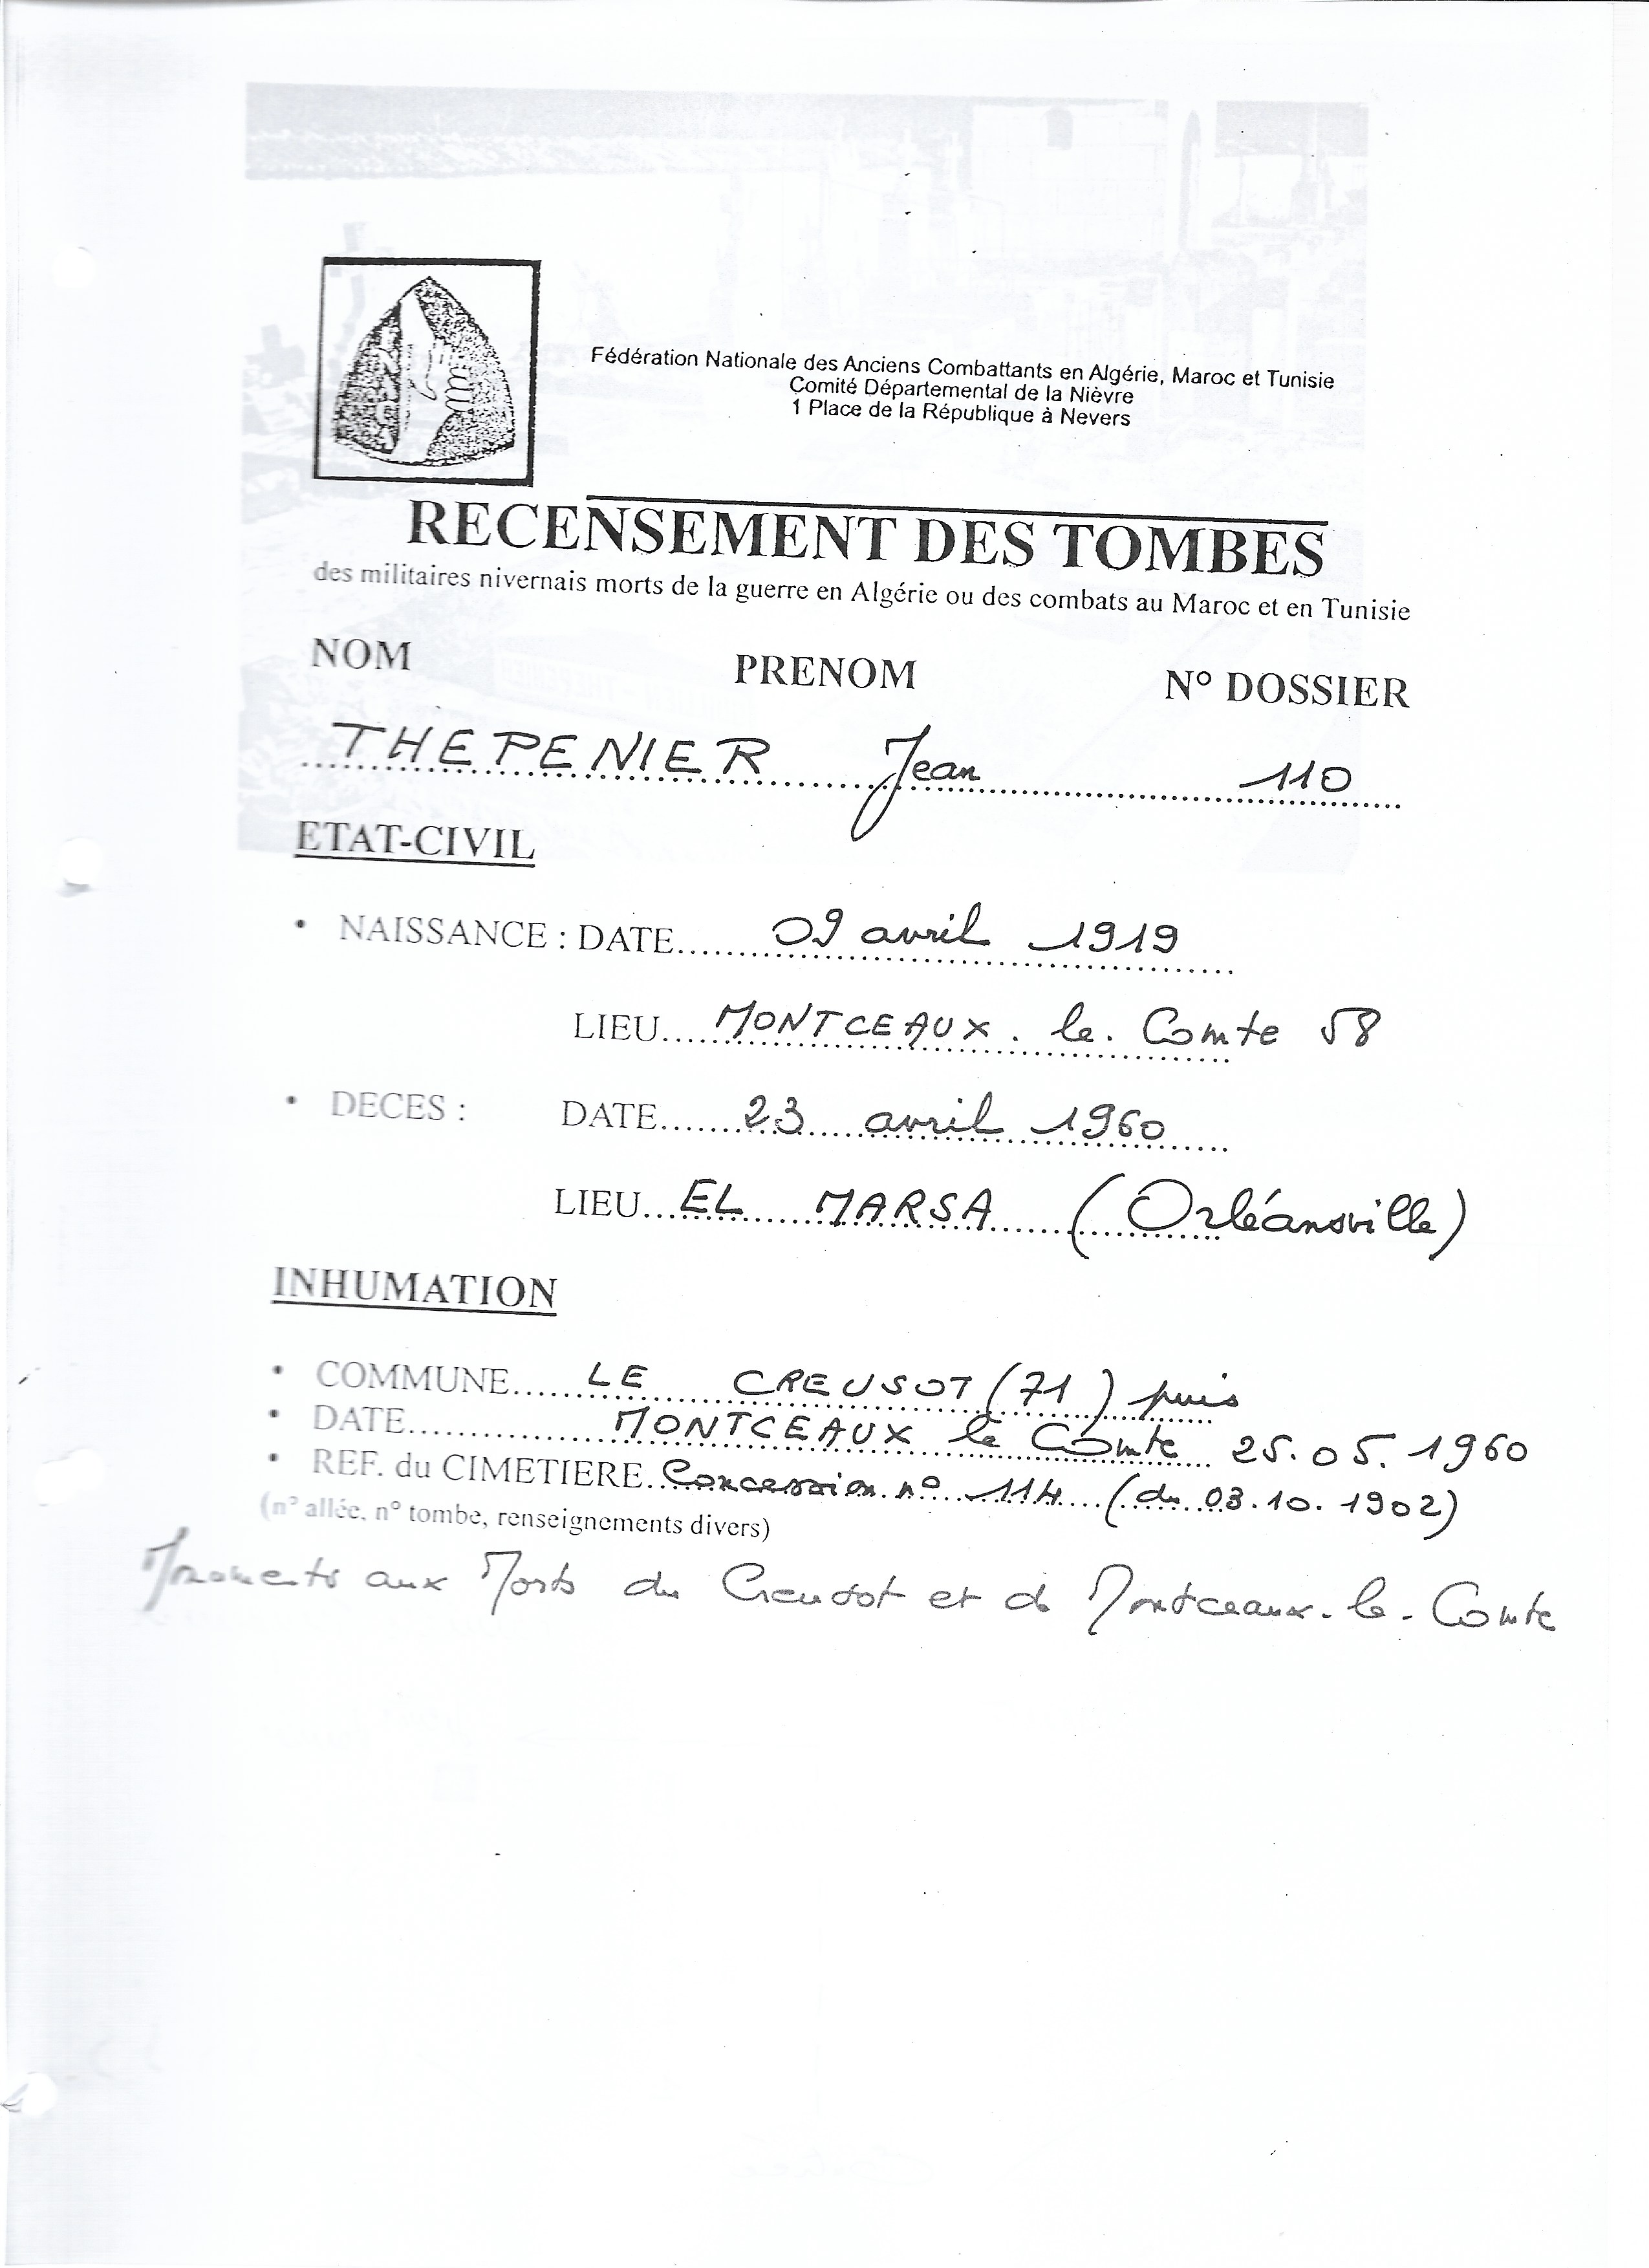 Fédération Nationale des Anciens Combattants en Algérie, Maroc et Tunisie
Comité Départemental de la Nièvre
1 Place de la République à Nevers
RECENSEMENT DES TOMBES
des militaires nivernais morts de la guerre en Algérie ou des combats au Maroc et en Tunisie
NOM PRENOM N° DOSSIER
THEPENIER Jean 110
ETAT-CIVIL
• NAISSANCE : DATE 09 avril 1919
LIEU MONTCEAUX. le. Comte 58
• DECES : DATE 23 avril 1960
LIEU EL MARSA (Orléansville)
INHUMATION
• COMMUNE LE CREUSOT (71) puis
• DATE MONTCEAUX le Comte 25.05.1960
• REF. du CIMETIERE Concession n° 114 (du 03.10.1902)
(n° allée, n° tombe, renseignements divers)
Monuments aux Morts du Creusot et de Montceaux-le-Comte